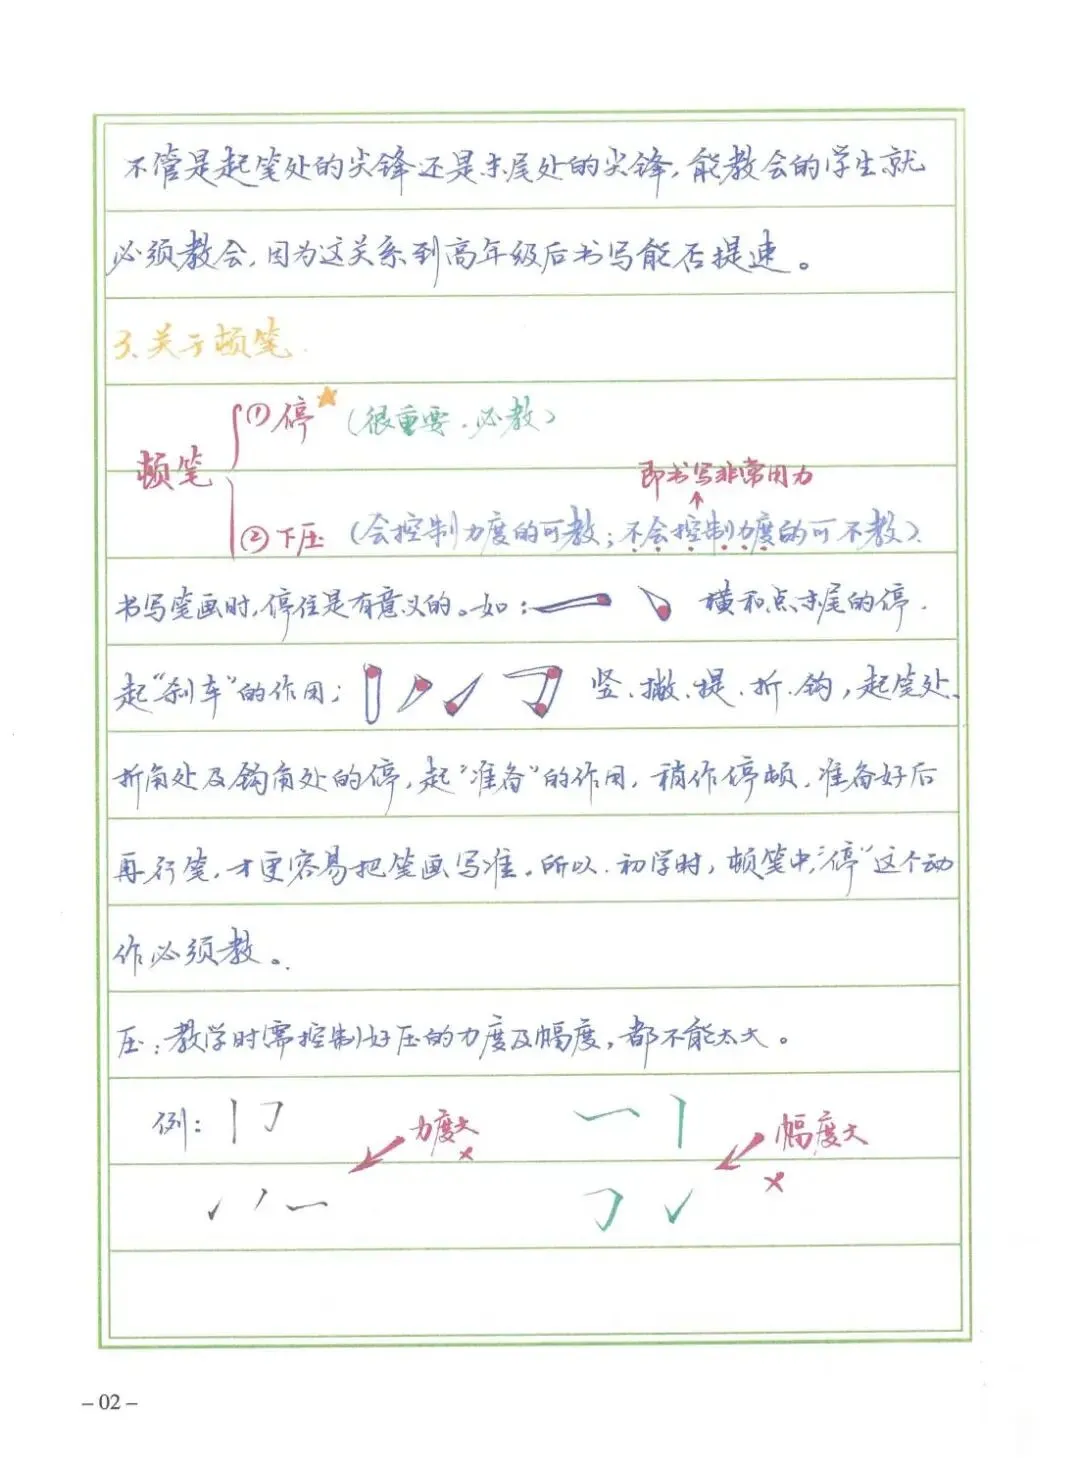 不管是起笔处的尖锋还是末尾处的尖锋，能教会的学生就
必须教会，因为这关系到高年级后书写能否提速。
3、关于顿笔
①停（很重要，必教）
顿笔
即书写非常用力
②下压（会控制力度的可教；不会控制力度的可不教）
书写笔画时，停住是有意义的。如： 横和点末尾的停，
起“刹车”的作用； 竖、撇、提、折、钩，起笔处、
折角处及钩角处的停，起“准备”的作用，稍作停顿，准备好后
再行笔，才更容易把笔画写准。所以，初学时，顿笔中“停”这个动
作必须教。
压：教学时需控制好压的力度及幅度，都不能太大。
例： 力度大 × 幅度大 ×
- 02 -